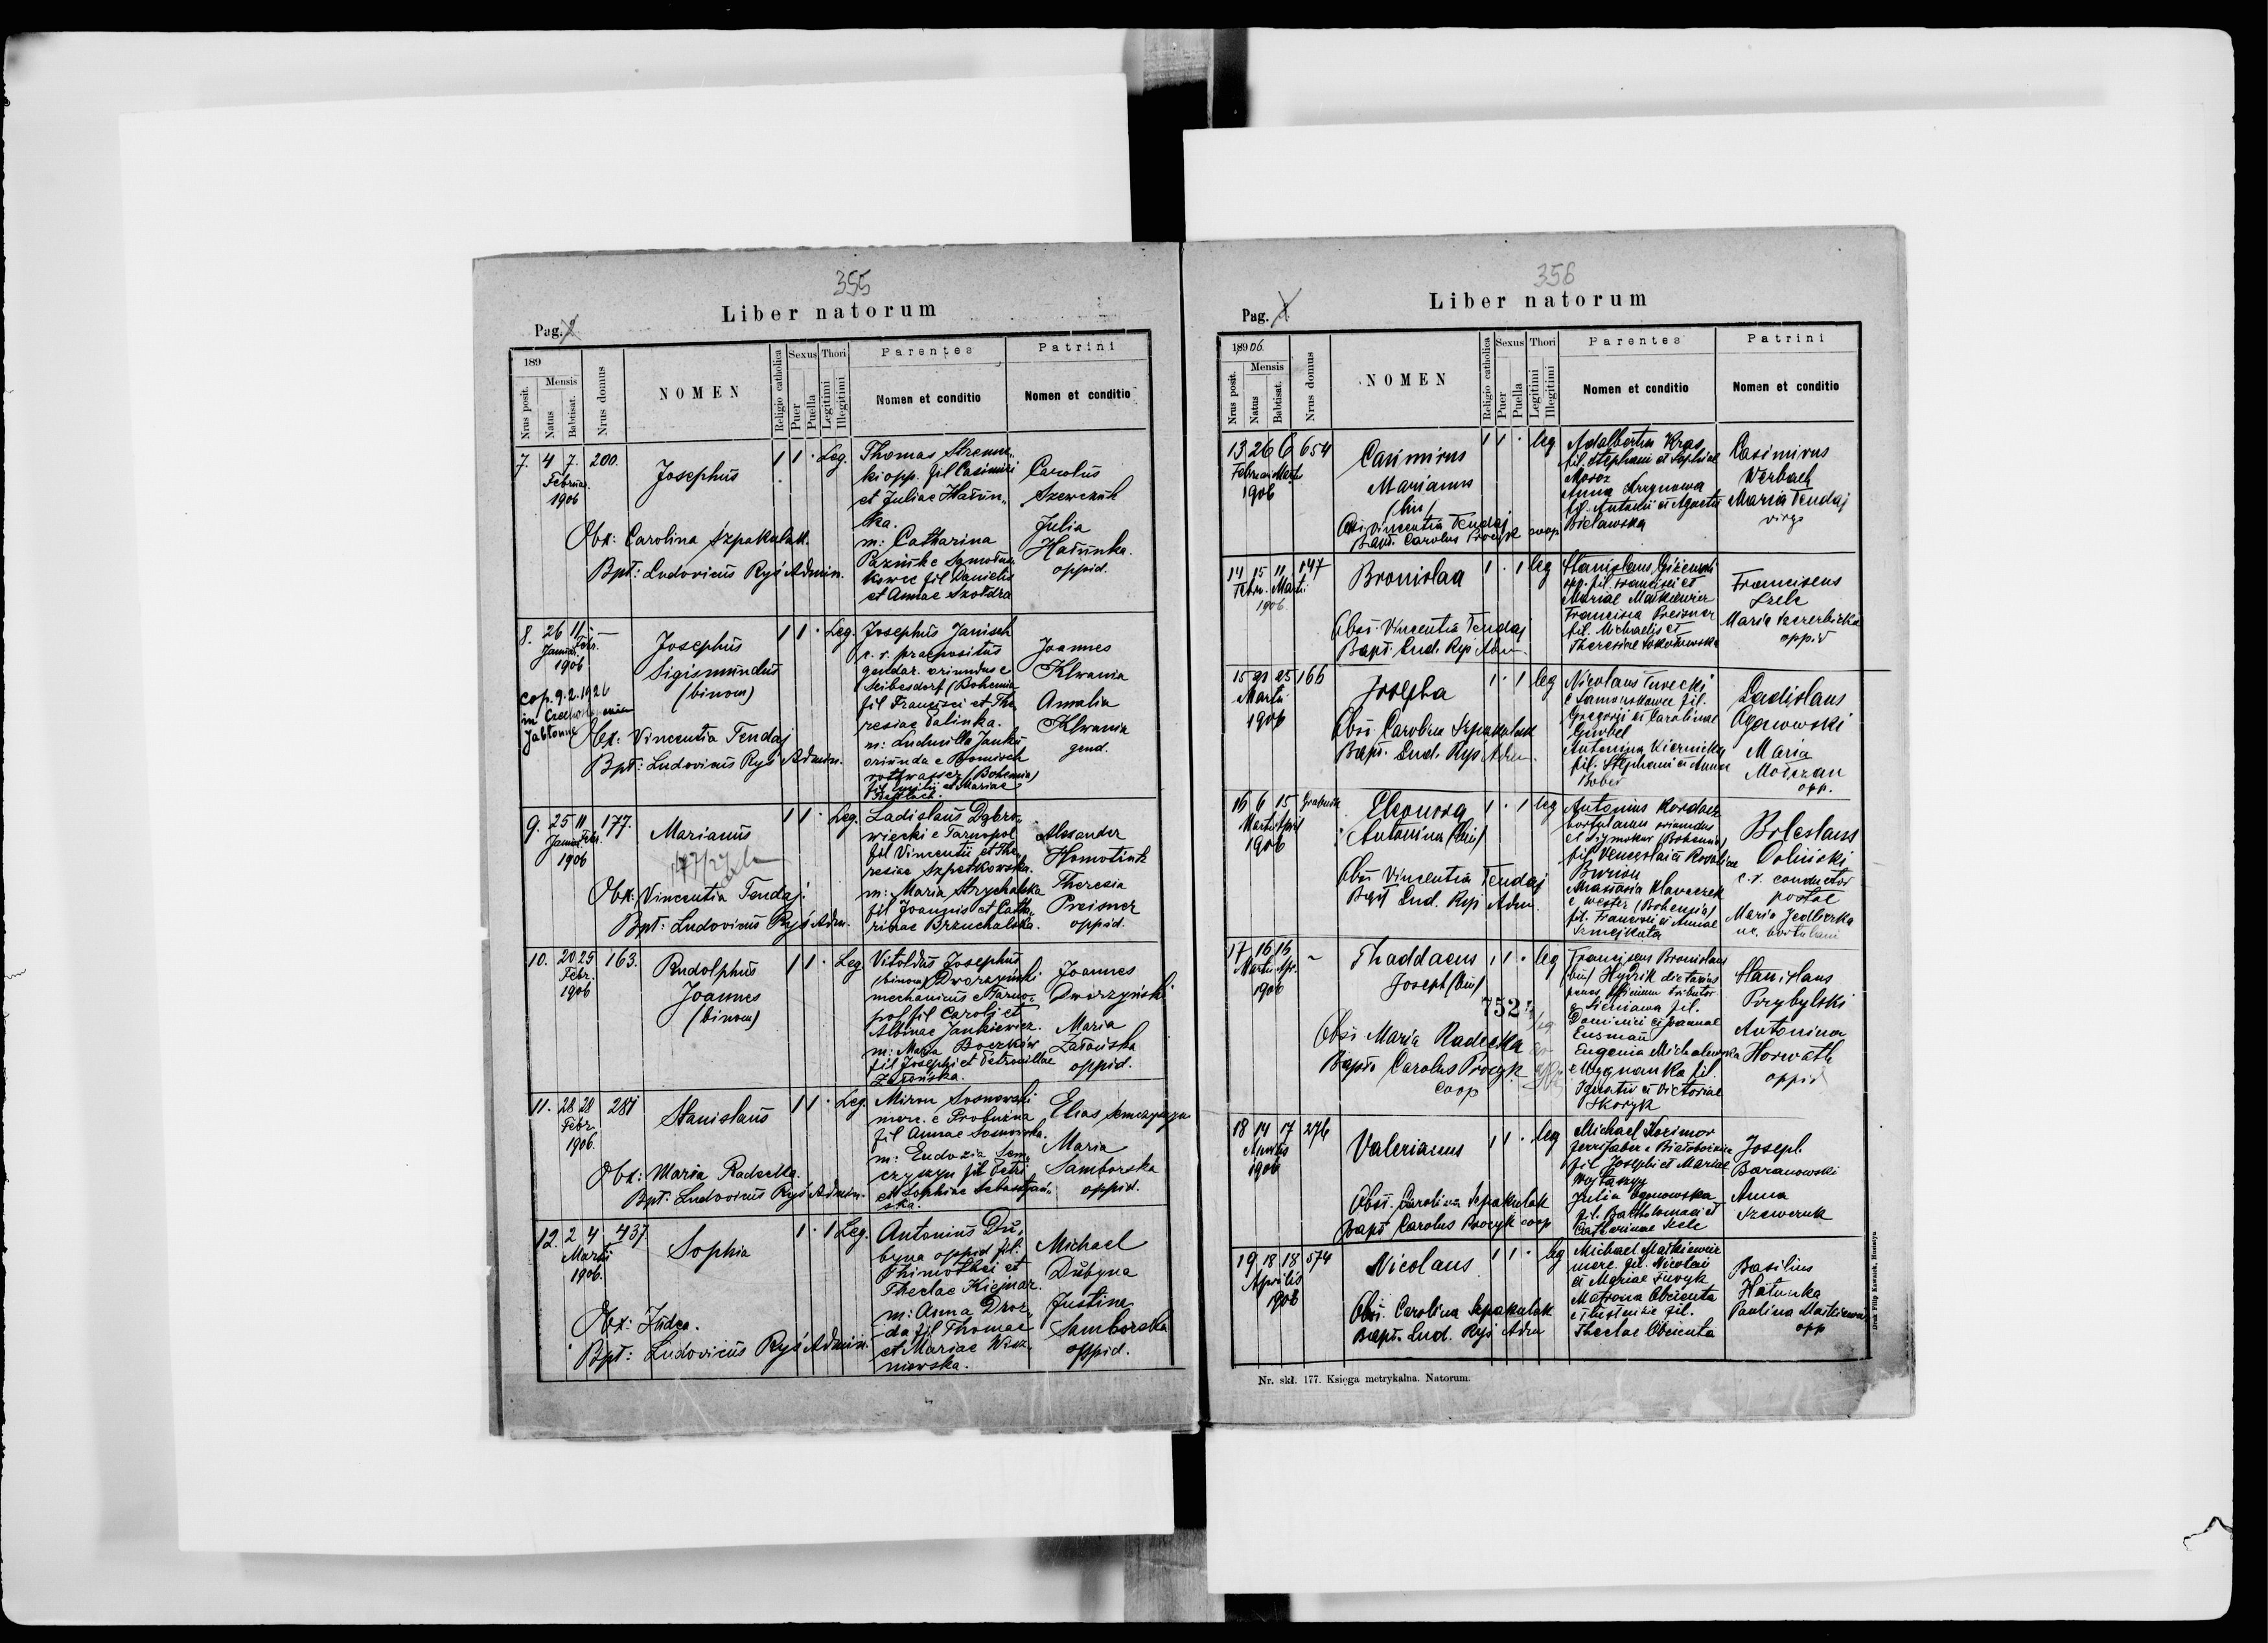 355
Liber natorum
Pag. 2
189
Nrus posit.
Mensis
Natus
Babtisat.
Nrus domus
NOMEN
Religio catholica
Sexus
Puer
Puella
Thori
Legitimi
Illegitimi
Parentes
Nomen et conditio
Patrini
Nomen et conditio
7. 4 7. 200.
Februar.
1906
Josephus
1 1 · Leg.
Obst: Carolina Szpakulak.
Bpt: Ludovicus Ryś Admin.
Thomas
ki opp. fil Casimiri
et Juliae Hatun„
ka.
m: Catharina
kowce fil Danielis
et Annae Szotdra
Carolus
Szewczuk
Julia
Hatunka.
oppid.
8. 26 11 —
Januar. Febr.
1906
cop. 9.2.1926
in
Josephus
Sigismundus
(binom)
1 1 · Leg.
Obst: Vincentia Tendaj
Bpt: Ludovicus Ryś Admin.
Josephus Janisch
c. r. praepositus
gendar. oriundus e
Seibesdorf (Bohemia
fil Francisci et The„
resiae Jalinka.
m: Ludmilla Janků
oriunda e Bömisch
rothwasser (Bohemia)
fil et Mariae
Joannes
Klwania
Amalia
Klwania
gend.
9. 25 11. 177.
Januar. Febr.
1906
Marianus
1 1 · Leg.
Obst: Vincentia Tendaj.
Bpt: Ludovicus Ryś Adm.
Ladislaus Dąbro„
wiecki e Tarnopol
fil Vincentii et The„
resiae Szpetkowska.
m: Maria Strychalska
fil Joannis et Catha„
rinae Brzuchalska.
Alexander
Homotiuk
Theresia
Preisner
oppid.
10. 20 25 163.
Febr.
1906
Rudolphus
Joannes
(binom)
1 1 · Leg
Vitoldus Josephus
(binom) Dworzyński
mechanicus e Tarno„
pol fil Caroli et
Albinae Jankiewicz.
m: Maria Boczków
fil Josephi et Petronillae
Joannes
Dworzyński
Maria
oppid.
11. 28 28 281
Febr.
1906.
Stanislaus
1 1 · Leg.
Obst: Maria Radecka.
Bpt: Ludovicus Ryś Admin.
Miron Sosnowski
merc. e Probużna
fil Annae Sosnowska.
m: Eudoxia Sem„
czyszyn fil Petri
et Sophiae Sebastjań„
ska.
Elias Semczyszyn
Maria
Samborska
oppid.
12. 2 4 437.
Martii
1906.
Sophia
1 · 1 Leg.
Obst: Judea.
Bpt: Ludovicus Ryś Admin.
Antonius Du„
byna oppid fil.
Thimothei et
Theclae
m: Anna Droz„
da fil Thomae
et Mariae Wisz„
niowska.
Michael
Dubyna
Justina
Samborska
oppid.
356
Liber natorum
Pag.
18906.
Nrus posit.
Mensis
Natus
Babtisat.
Nrus domus
NOMEN
Religio catholica
Sexus
Puer
Puella
Thori
Legitimi
Illegitimi
Parentes
Nomen et conditio
Patrini
Nomen et conditio
13 26 6 654
Februar Martii
1906
Casimirus
Marianus
(bin)
1 1 · leg
Obst Vincentia Tendaj
Bapt. Carolus Procyk coop
Adalbertus Kras
fil. Stephani et Sophiae
Moroz
Anna
fil. Antonii et Agnetis
Bielawska
Casimirus
Werbach
Maria Tendaj
virgo
14 15 11 147
Febr. Martii
1906.
Bronislaa
1 · 1 leg
Obst. Vincentia Tendaj
Bapt. Lud. Ryś Adm.
Stanislaus
opp. fil. Francisci et
Mariae Maikiewicz
Francisca Preizner
fil. Michaelis et
Theresiae
Franciscus
Szele
Maria
oppid
15 21 25 166
Martii
1906
Josepha
1 · 1 leg
Obst. Carolina Szpakulak
Bapt. Lud. Ryś Adm.
Nicolaus Turecki
fil.
Gregorii et Carolinae
Antonina Kiernicka
fil. Stephani et Annae
Bober
Ladislaus
Ogonowski
Maria
Moiczan
opp.
16 6 15
Martii April
1906
Eleonora
Antonina (bin)
1 · 1 leg
Obst Vincentia Tendaj
Bapt Lud. Ryś Adm.
Antonius
hortulanus oriundus
(Bohemia)
fil. Venceslai et Rosaliae
Klaveczek
(Bohemia)
fil. Francisci et Annae
Boleslaus
Doliński
c. r. conductor
postae
Maria Jedliczka
ux. hortulani
17 16 16 –
Martii Apr.
1906
Thaddaeus
Joseph (bin)
1 1 · leg
752
Obst Maria Radecka
Bapt. Carolus Procyk
coop
Franciscus Bronislaus
(bin)
e Sieniawa fil.
Dominici et Joannae
Eugenia Michalewska
fil.
Ignatii et Victoriae
Skoryk
Stanislaus
Przybylski
Antonina
Horwath
oppid
18 14 17 276
Aprilis
1906
Valerianus
1 1 · leg
Obst. Carolina Szpakulak
Bapt Carolus Procyk coop
Michael Kozimor
fil Josephi et Mariae
Wojtaszyn
Julia Ogonowska
fil. Bartholomaei et
Catharinae Szele
Joseph
Baranowski
Anna
Szewczuk
19 18 18 574
Aprilis
1906
Nicolaus
1 1 · leg
Obst. Carolina Szpakulak
Bapt. Lud. Ryś Adm
Michael Maikiewicz
merc. fil. Nicolai
et Mariae
Matrona Obuchta
fil.
Theclae
Basilius
Hatunka
Paulina Maikiewicz
opp
Nr. skł. 177. Księga metrykalna. Natorum.